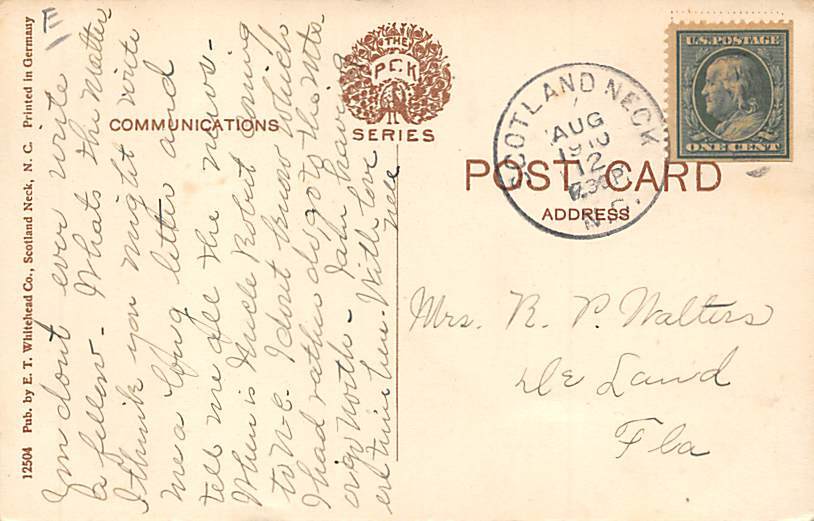 E
COMMUNICATIONS
THE
P.C.K
SERIES
POST CARD
ADDRESS
SCOTLAND NECK
AUG
12
1910
7 30 P
N.C.
U.S. POSTAGE
ONE CENT
12504 Pub. by E. T. Whitehead Co., Scotland Neck, N. C. Printed in Germany
You dont ever write
a fellow - Whats the matter
I think you might write
me a long letter and
tell me all the news -
When is Uncle Robert coming
to N-C. I dont know which
I had rather do go to the Mts.
or go North - Im having
time here - With love
Mrs. R. P. Walters
De Land
Fla